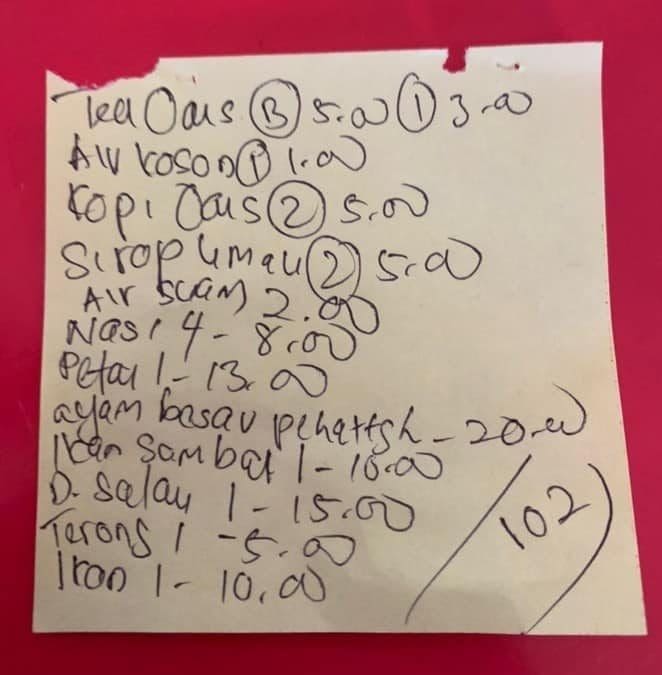 Tea Oais (B) 5.00 (1) 3.00
Air kosong (1) 1.00
Kopi Oais (2) 5.00
Sirop limau (2) 5.00
Air 2.00
Nasi 4 - 8.00
Petai 1 - 13.00
ayam besar - 20.00
Ikan Sambal 1 - 10.00
D. Salau 1 - 15.00
Terong 1 - 5.00
Iron 1 - 10.00
102